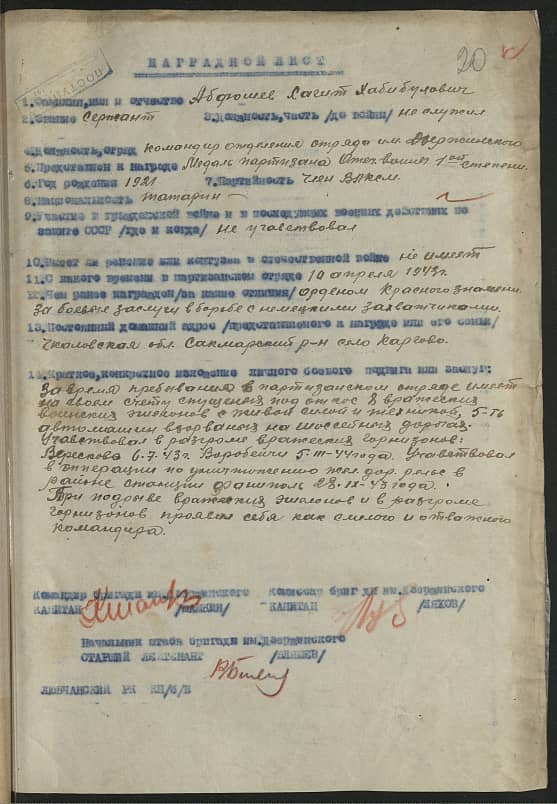 20
НАГРАДНОЙ ЛИСТ
1.Фамилия,имя и отчество Абдюшев Хагит Хабибулович
2.Звание Сержант 3.Должность,часть /до войны/ не служил
4.Должность,отряд командир отделения отряда им. Дзержинского
5.Представлен к награде Медаль партизана Отеч.войны 1ой степени.
6.Год рождения 1921 7.Партийность член ВЛКСМ.
8.Национальность татарин
9.Участие в гражданской войне и в последующих военных действиях по
защите СССР /где и когда/ не участвовал
10.Имеет ли ранение или контузия в отечественной войне не имеет
11.С какого времени в партизанском отряде 10 апреля 1943г.
12.Чем ранее награжден/за какие отличия/ орденом Красного знамени.
За боевые заслуги в борьбе с немецкими захватчиками.
13.Постоянный домашний адрес /представляемого к награде или его семьи/
Чкаловская обл. Сакмарский р-н село Каргово.
14.Краткое,конкретное изложение личного боевого подвига или заслуг:
За время пребывания в партизанском отряде имеет
на своем счету спущеных под откос 8 вражеских
воинских эшелонов с живой силой и техникой, 5-ть
автомашин взорваных на шоссейных дорогах.
Учавствовал в разгроме вражеских горнизонов:
Вересково 6.7.43г. Воробейчи 5-III-44года. Учавствовал
в операции по уничтожению жел.дор. рельс в
районе станции Фаниполь 28.IX-43года.
При подрыве вражеских эшелонов и в разгроме
горнизонов проявил себя как смелого и отважного
командира.
Командир бригады им.Дзержинского Комиссар бригады им.Дзержинского
КАПИТАН КАПИТАН /ЛЯХОВ/
Начальник штаба бригады им.Дзержинского
СТАРШИЙ ЛЕЙТЕНАНТ
ЛЮБЧАНСКИЙ РК КП/б/Б